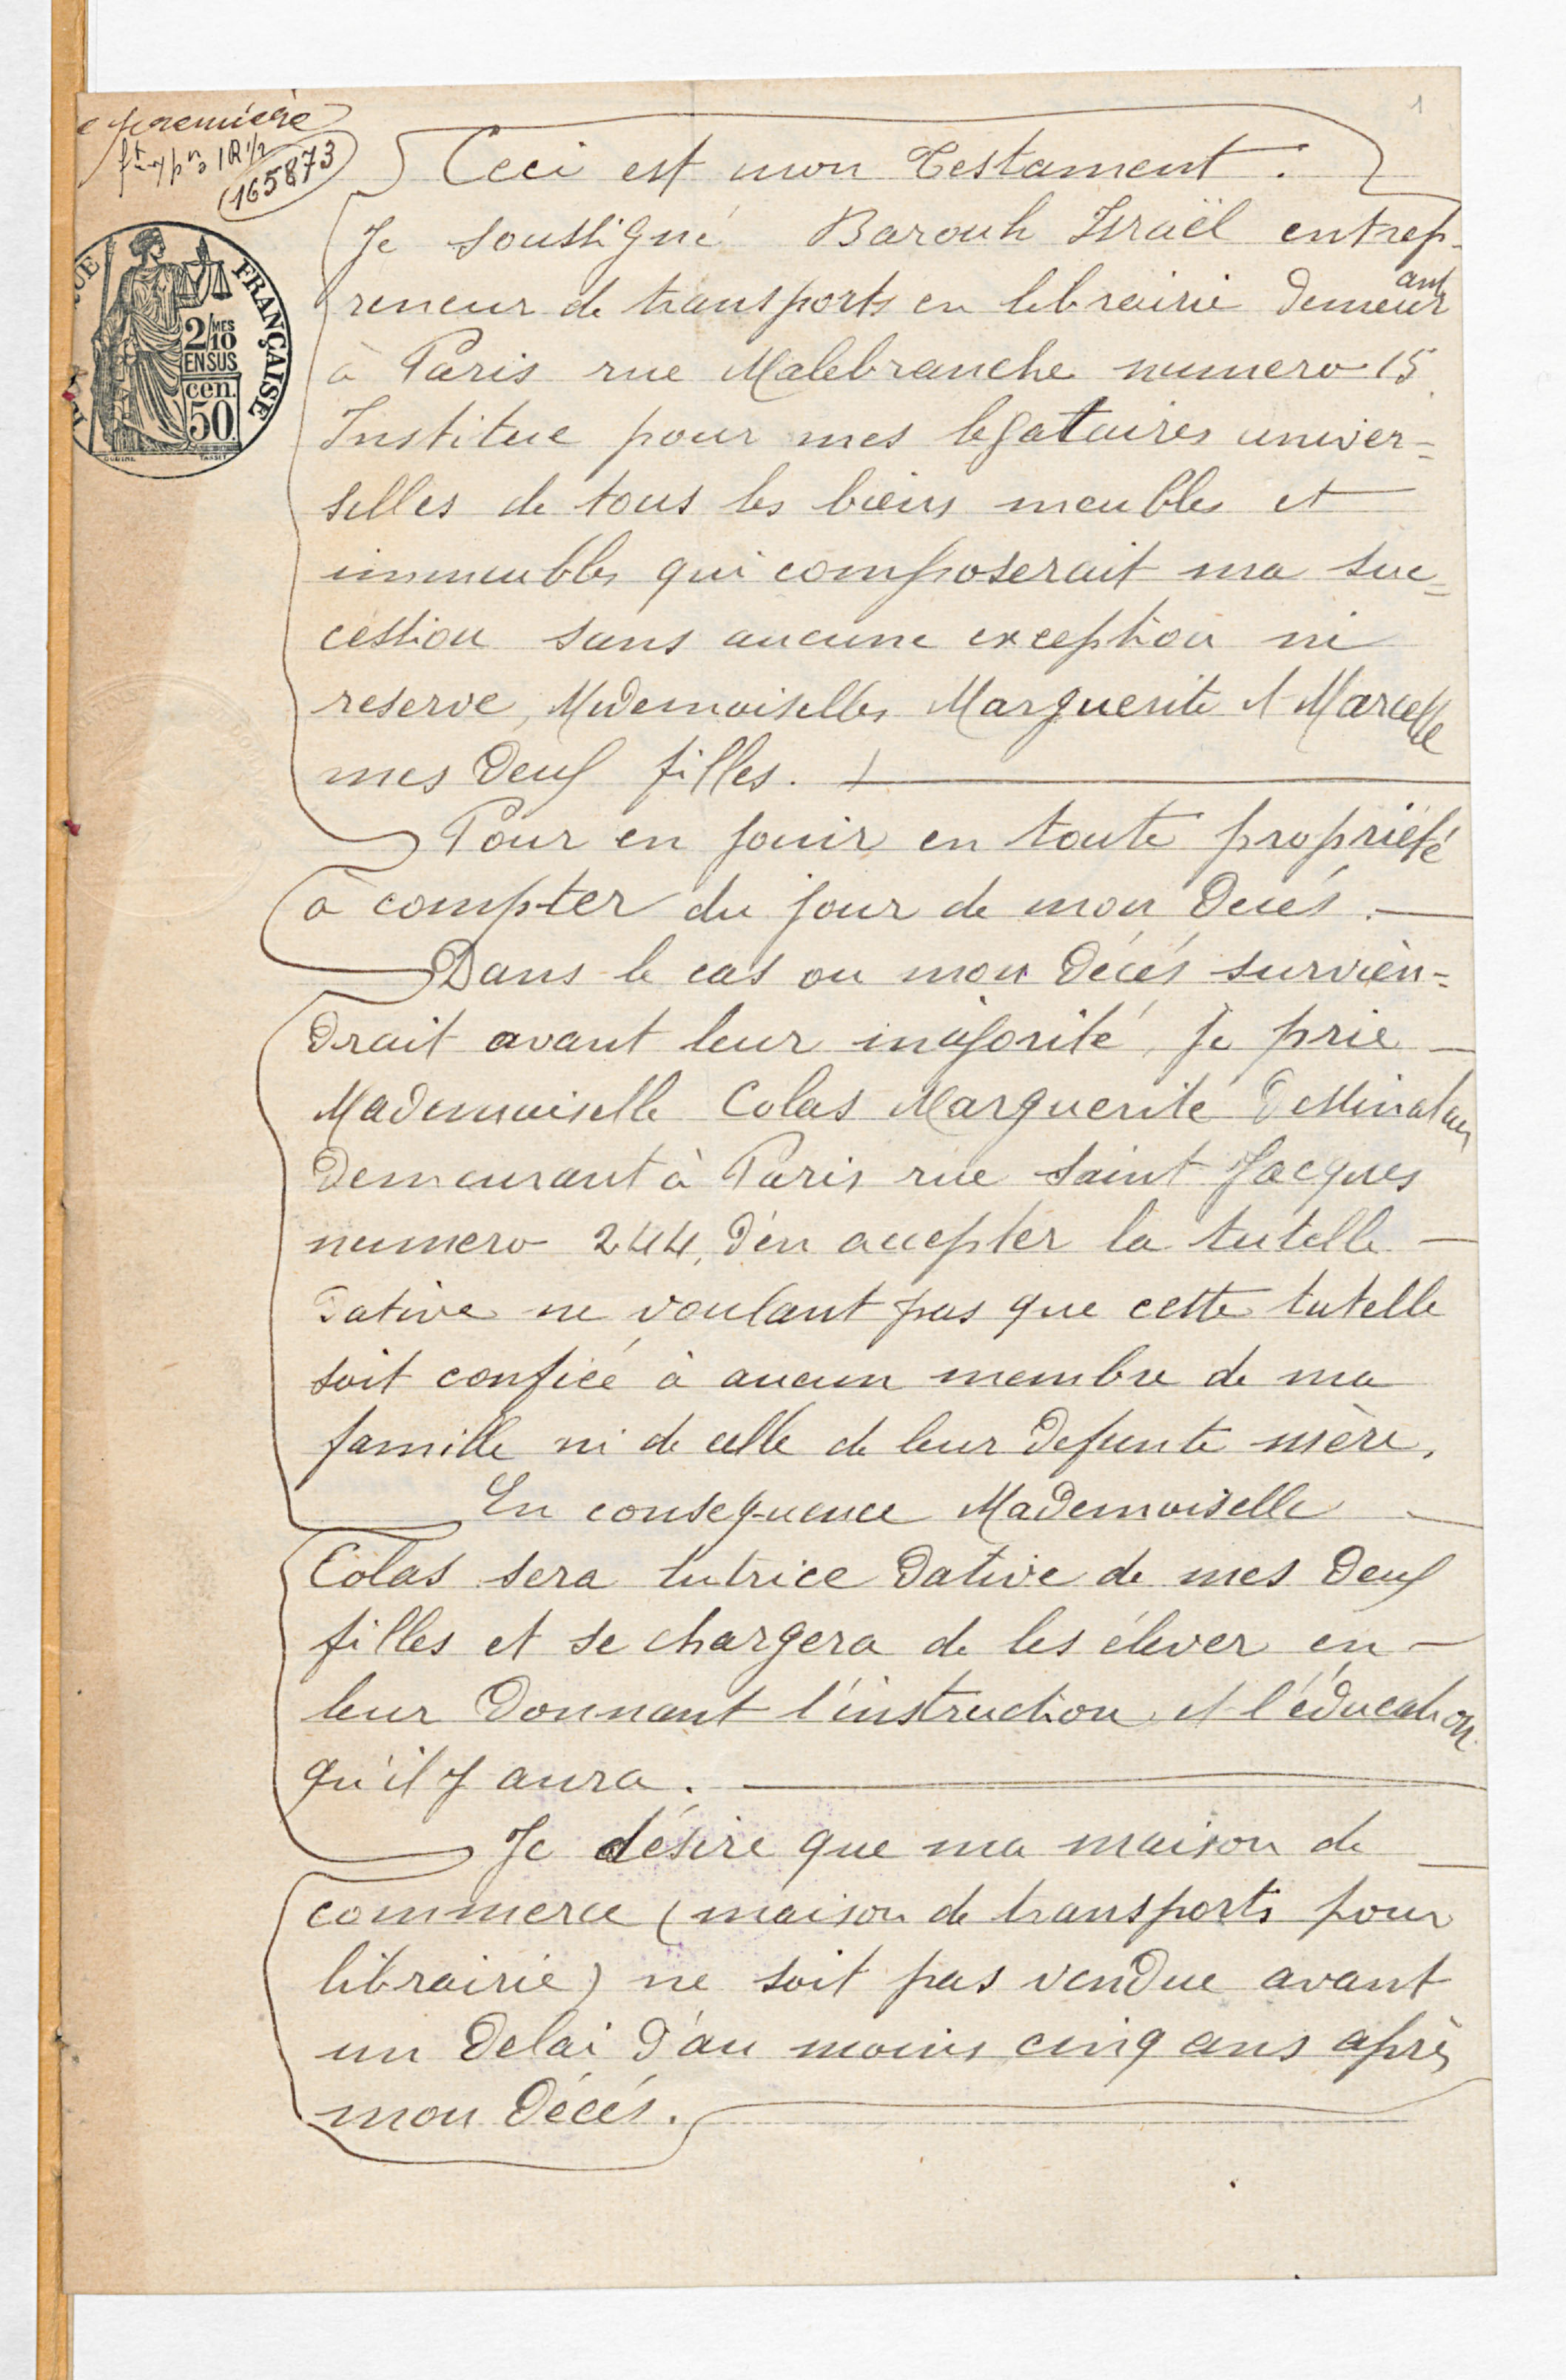 première
165873
1
Ceci est mon Testament.
Je soussigné Barouh Israël entrep-
reneur de transports en librairie demeurant
à Paris rue Malebranche numero 15.
Institue pour mes legataires univer=
selles de tous les biens meubles et
immeubles qui composerait ma suc=
cession sans aucune exception ni
reserve, Mademoiselles Marguerite et Marcelle
mes deux filles.
Pour en jouir en toute propriété
à compter du jour de mon decés.
Dans le cas ou mon décés survien=
drait avant leur majorité, je prie
Mademoiselle Colas Marguerite dessinateur
demeurant à Paris rue Saint Jacques
numero 244, d'en accepter la tutelle
dative ne voulant pas que cette tutelle
soit confiée à aucun membre de ma
famille ni de celle de leur defunte mère.
En consequence Mademoiselle
Colas sera tutrice dative de mes deux
filles et se chargera de les élever en
leur donnant l'instruction et l'éducation
qu'il y aura.
Je désire que ma maison de
commerce (maison de transports pour
librairie) ne soit pas vendue avant
un delai d'au moins cinq ans après
mon décés.
FRANÇAISE
2/10 MES
EN SUS
50 cen.